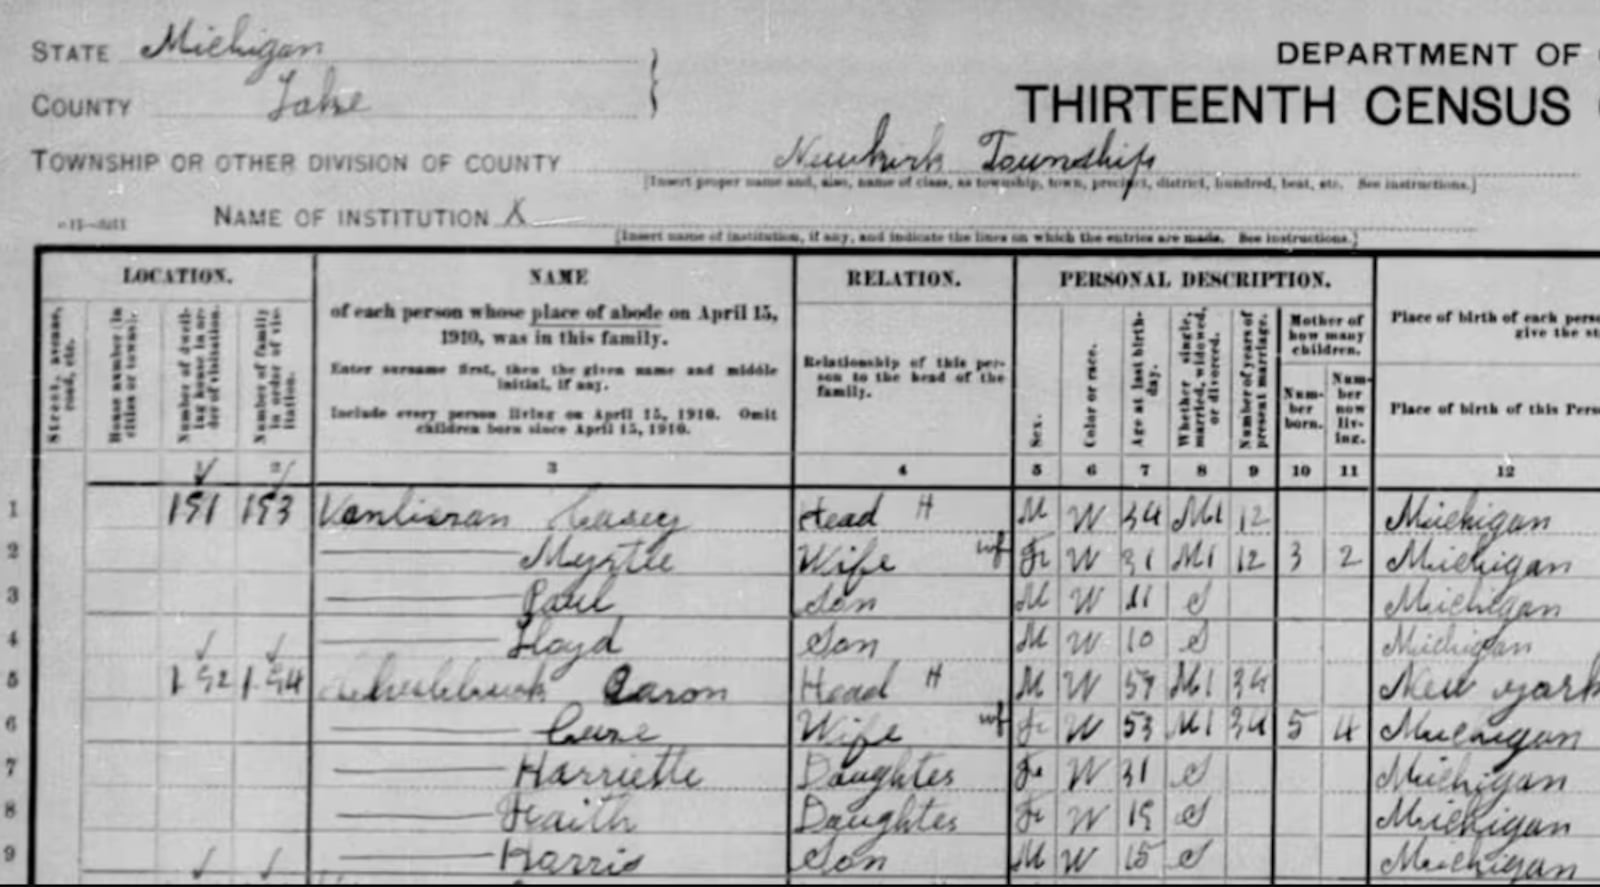 STATE Michigan
COUNTY Lake
TOWNSHIP OR OTHER DIVISION OF COUNTY Newkirk Township
[Insert proper name and, also, name of class, as township, town, precinct, district, hundred, beat, etc. See instructions.]
NAME OF INSTITUTION X
[Insert name of institution, if any, and indicate the lines on which the entries are made. See instructions.]
DEPARTMENT OF
THIRTEENTH CENSUS
LOCATION.
Street, avenue, road, etc.
House number (in cities or towns).
Number of dwelling house in order of visitation.
Number of family in order of visitation.
NAME
of each person whose place of abode on April 15,
1910, was in this family.
Enter surname first, then the given name and middle
initial, if any.
Include every person living on April 15, 1910. Omit
children born since April 15, 1910.
RELATION.
Relationship of this per-
son to the head of the
family.
PERSONAL DESCRIPTION.
Sex.
Color or race.
Age at last birth-
day.
Whether single,
married, widowed,
or divorced.
Number of years of
present marriage.
Mother of
how many
children.
Num-
ber
born.
Num-
ber
now
liv-
ing.
Place of birth of each
give the
Place of birth of this
3 4 5 6 7 8 9 10 11 12
1 191 193 Casey Head H M W 34 M1 12 Michigan
2 Myrtle Wife wf F W 31 M1 12 3 2 Michigan
3 Paul Son M W 11 S Michigan
4 Lloyd Son M W 10 S Michigan
5 192 194 Aaron Head H M W M1 34 New York
6 Wife wf F W 53 M1 34 5 4 Michigan
7 Harriette Daughter F W 31 S Michigan
8 Faith Daughter F W 19 S Michigan
9 Harris Son M W 15 S Michigan